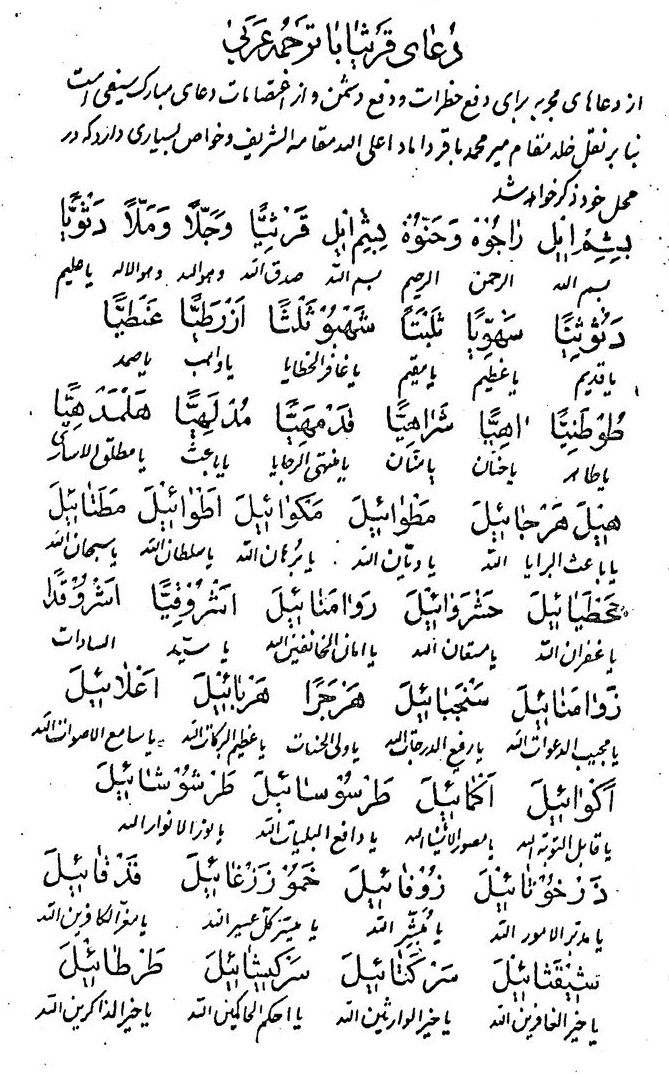 دُعای قرثیا با ترجمهٔ عربی
از دعاهای مجربه برای دفع خطرات و دفع دشمن و از اختصاصات دعای مبارک سیفی است
بنا بر نقل خلد مقام میر محمد باقر داماد اعلی الله مقامه الشریف و خواص بسیاری دارد که در
محل خود ذکر خواهد شد
بِشِمْاٖئِلٖ رٰاجُوُهْ وَحَنُّوُهْ بِیِثِمْ اٖئِلٖ قَرْثِیًّا وَجَلّاً وَمَلّاً دَثْوَیًّا
بسم الله الرحمن الرحیم بسم الله صدق الله وهو الله وهو الاله یا حلیم
دَثُوثِیًّا سَهْوِیًّا ثَلَیْتًا شَهْبُوُثَلْثًا اَزْرَطِیًّا عَنَطِیًّا
یا قدیم یا عظیم یا مقیم یا غافر الخطایا یا واهب یا صمد
طُوُطَنِیًّا اَهِیًّا شَرٰاهِیًّا قَدْمَهِیًّا مُدْلَهِیًّا هَلْمَدْهِیًّا
یا طاهر یا حنان یا منان یا منتهی الرجایا یا باعث یا مطلق الاساری
هیَلَ هَرْجٰائیٖلَ مَطْوٰائیٖلَ مَکْوٰائیٖلَ اَطْوٰائیٖلَ مَطَنٰائیٖلَ
یا باعث البرایا الله یا دیّان الله یا برهان الله یا سلطان الله یا سبحان الله
حَحَظْیٰائیٖلَ حَشْرَوٰائیٖلَ رَوٰامَنٰائیٖلَ اَشْرُوُفِیًّا اَشْرُوُقَدًا
یا غفران الله یا مستعان الله یا امان الخائفین الله یا سیّد السادات
زَوٰامَنٰائیٖلَ سَنْجَبٰائیٖلَ هَزْجَزًا هَرْبٰائیٖلَ اَعْلٰائیٖلَ
یا مجیب الدعوات الله یا رفیع الدرجات الله یا ولی الحسنات یا عظیم البرکات الله یا سامع الاصوات الله
اَکْوٰائیٖلَ اَکْمٰائیٖلَ طَرْسُوُسٰائیٖلَ طَرْشُوُشٰائیٖلَ
یا قابل التوبه الله یا مصور الاشیاء الله یا دافع البلیات الله یا نور الانوار الله
دَرْخُوُثٰائیٖلَ زُوُفٰائیٖلَ خَمُوُزَرْغٰائیٖلَ قَدْقٰائیٖلَ
یا مدبر الامور الله یا مُبَشِّر الله یا میسّر کلّ عسیر الله الکافرین الله
شیٖقَثٰائیٖلَ سَرْکَتٰائیٖلَ سَرْکیٖثٰائیٖلَ طَرْطٰائیٖلَ
یا خیر الغافرین الله یا خیر الوارثین الله یا احکم الحاکمین الله یا خیر الذاکرین الله